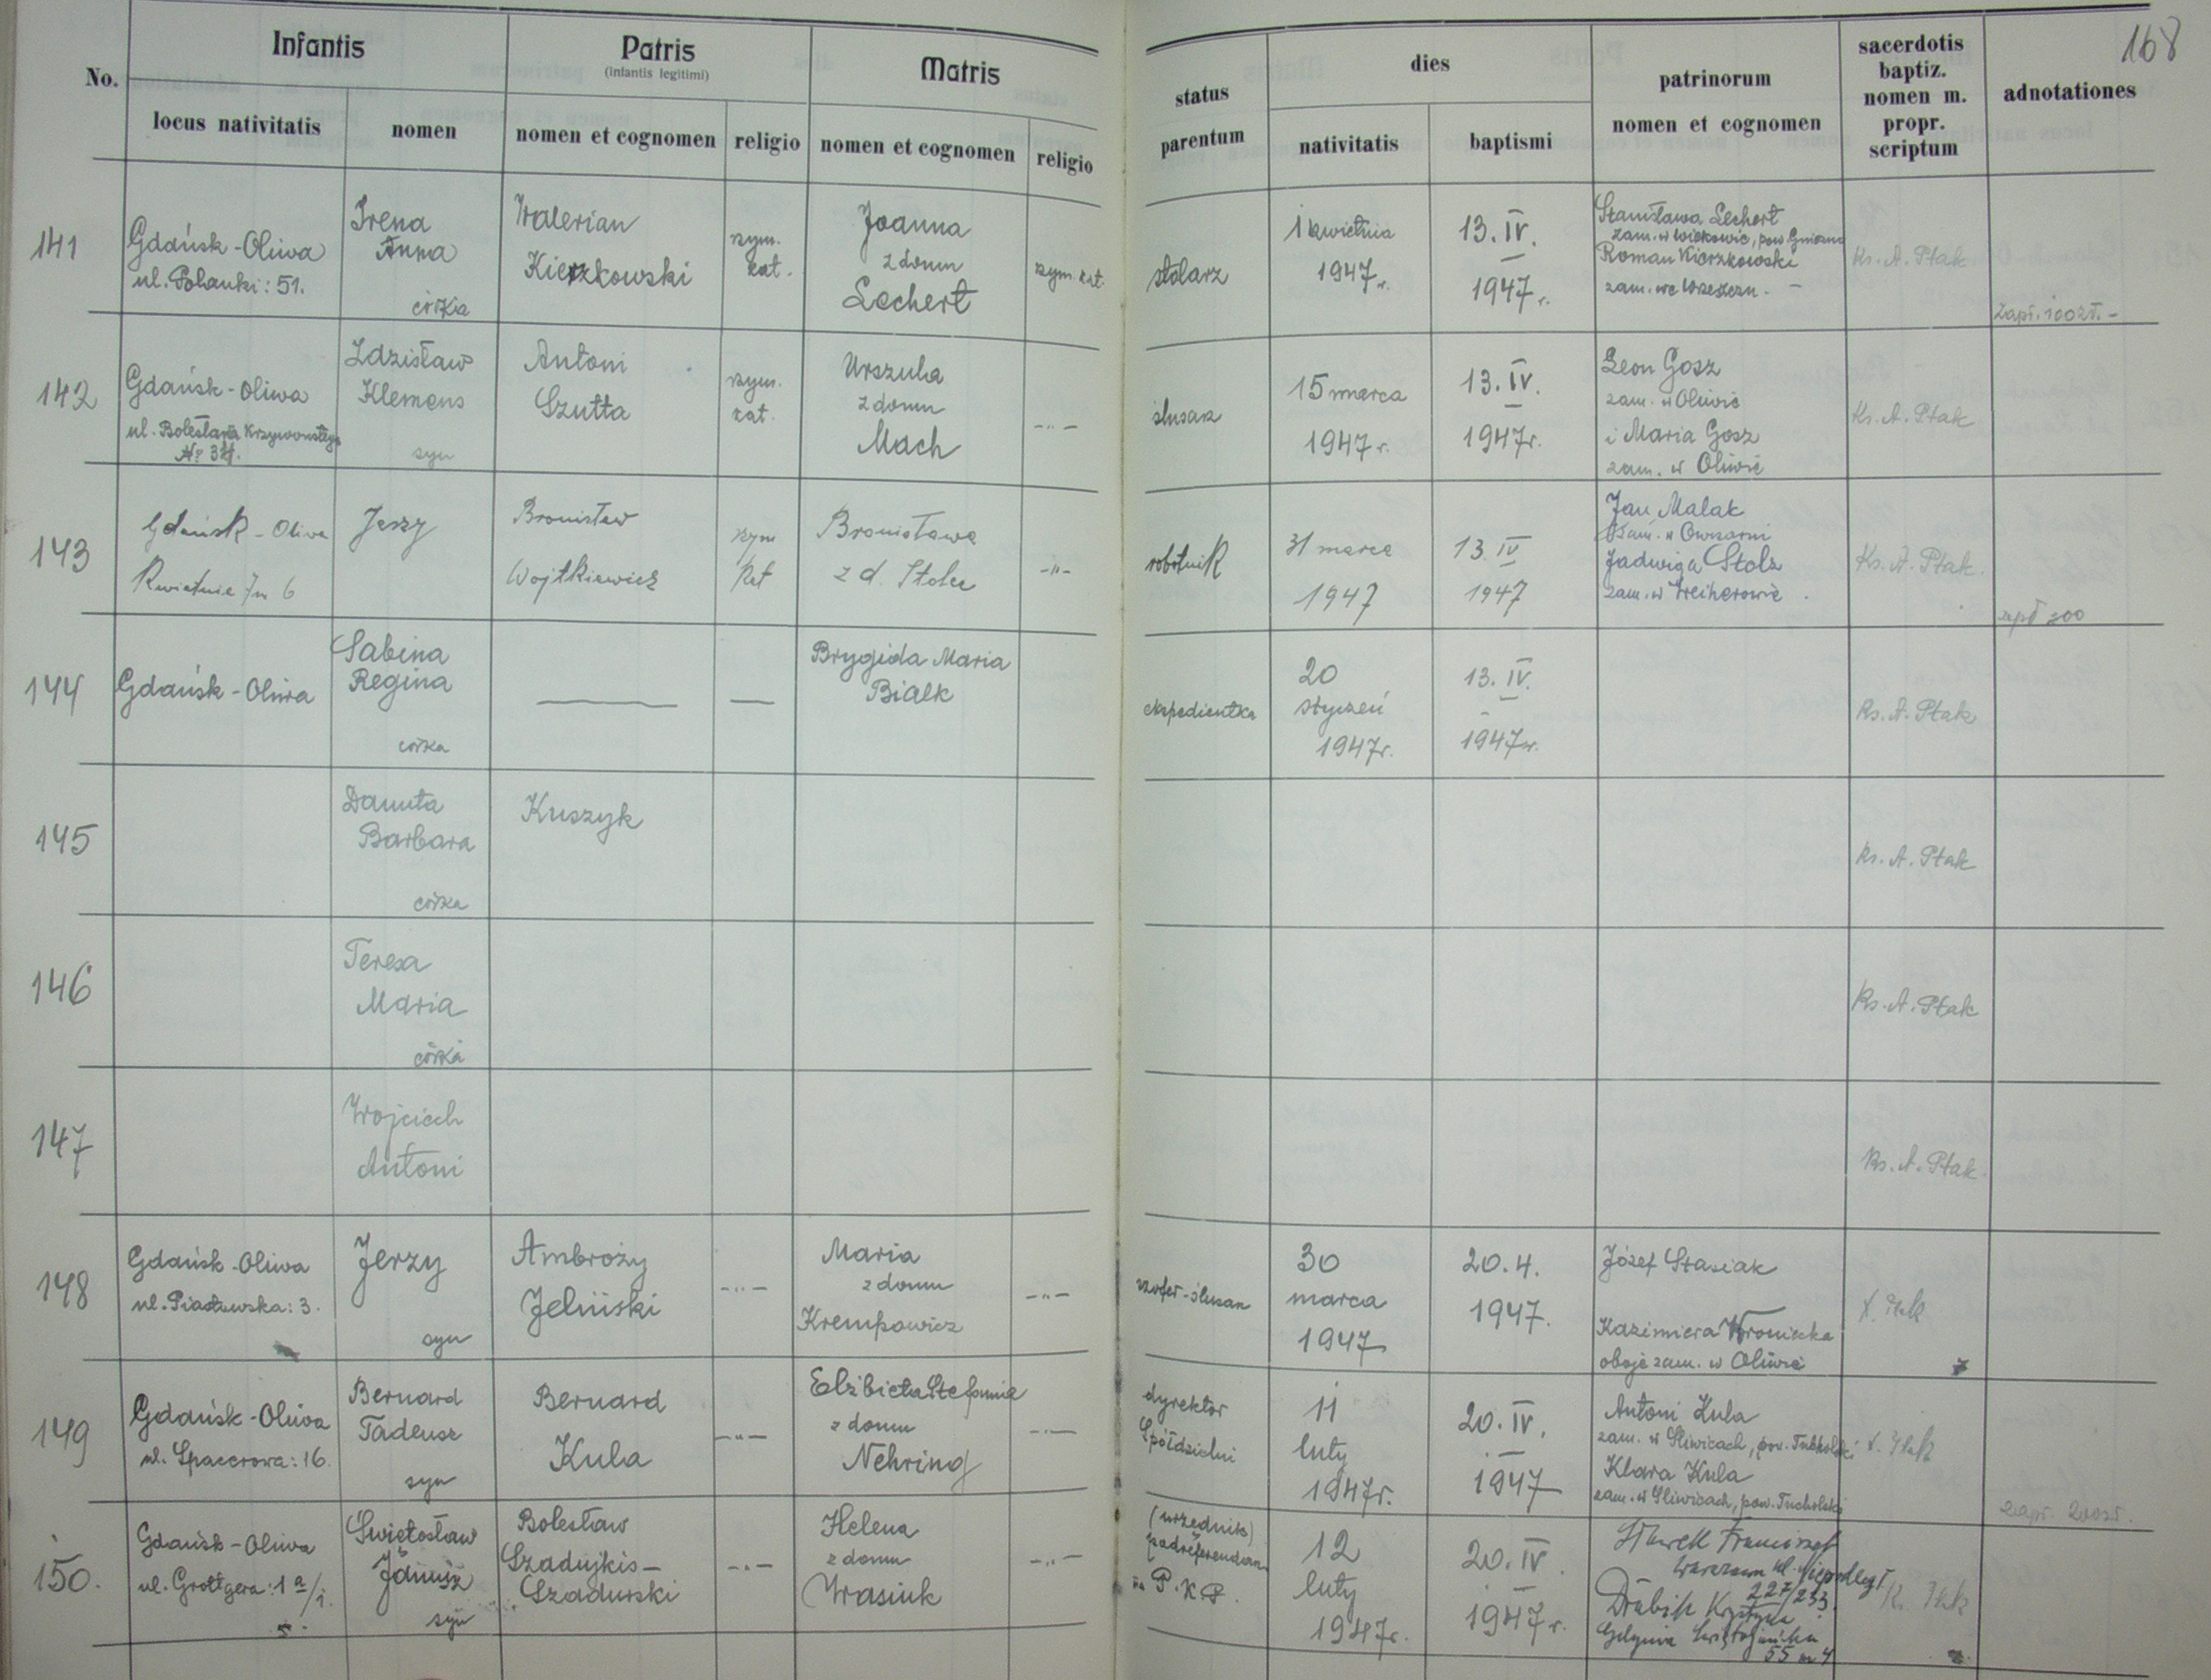 168
No.
Infantis
locus nativitatis
nomen
Patris
(infantis legitimi)
nomen et cognomen
religio
Matris
nomen et cognomen
religio
status
parentum
dies
nativitatis
baptismi
patrinorum
nomen et cognomen
sacerdotis
baptiz.
nomen m.
propr.
scriptum
adnotationes
141
Gdańsk-Oliwa
ul. Polanki: 51.
Irena
Anna
córka
Walerian
Kierzkowski
rzym.
kat.
Joanna
z domu
Lechert
rzym. kat.
stolarz
1 kwietnia
1947 r.
13. IV.
1947 r.
Stanisława Lechert
zam. w, pow. Gniezno
Roman Kierzkowski
zam. we Wrzeszczu. -
Ks. A. Ptak
Zapł. 100 zł. -
142
Gdańsk-Oliwa
ul. Bolesława Krzywoustego
Nº
Zdzisław
Klemens
syn
Antoni
Szutta
rzym.
kat.
Urszula
z domu
Mach
-"-
ślusarz
15 marca
1947 r.
13. IV.
1947 r.
Leon Gosz
zam. w Oliwie
i Maria Gosz
zam. w Oliwie
Ks. A. Ptak
143
Gdańsk - Oliwa
Kwietnie 7 m 6
Jerzy
Bronisław
Wojtkiewicz
rzym
kat
Bronisława
z d. Stolc
-"-
robotnik
31 marca
1947
13. IV
1947
Jan Malak
zam. w Owczarni
Jadwiga Stolz
zam. w Wejherowie.
Ks. A. Ptak.
zapł 200
144
Gdańsk-Oliwa
Sabina
Regina
córka
—
—
Brygida Maria
Bialk
ekspedientka
20
styczeń
1947 r.
13. IV.
1947 r.
Ks. A. Ptak
145
Danuta
Barbara
córka
Kuszyk
Ks. A. Ptak
146
Teresa
Maria
córka
Ks. A. Ptak
147
Wojciech
Antoni
Ks. A. Ptak
148
Gdańsk-Oliwa
ul. Piastowska: 3.
Jerzy
syn
Ambroży
Jeliński
-"-
Maria
z domu
Krempowicz
-"-
szofer-ślusarz
30
marca
1947
20. 4.
1947.
Józef Stasiak
Kazimiera Wroniecka
oboje zam. w Oliwie
149
Gdańsk-Oliwa
ul. Spacerowa: 16.
Bernard
Tadeusz
syn
Bernard
Kula
-"-
Elżbieta Stefania
z domu
Nehring
-"-
dyrektor
Spółdzielni
11
luty
1947 r.
20. IV.
1947
Antoni Kula
zam. w Śliwicach, pow. Tucholski
Klara Kula
zam. w Śliwicach, pow. Tucholski
zapł. 200 zł.
150.
Gdańsk-Oliwa
ul. Grottgera: 1 a/1.
Świętosław
Janusz
syn
Bolesław
Szadujkis-
Szadurski
-"-
Helena
z domu
Wasiuk
-"-
(urzędnik)
P.K.P.
12
luty
1947 r.
20. IV.
1947 r.
Franciszek
Warszawa Al. Niepodległ.
227/233.
Drabik Krystyna
Gdynia Świętojańska
55 m 4